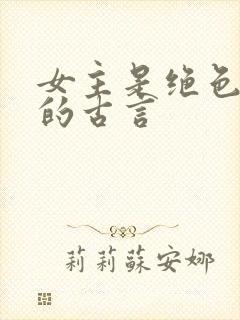 女主是绝色
的古言
莉莉蘇安娜